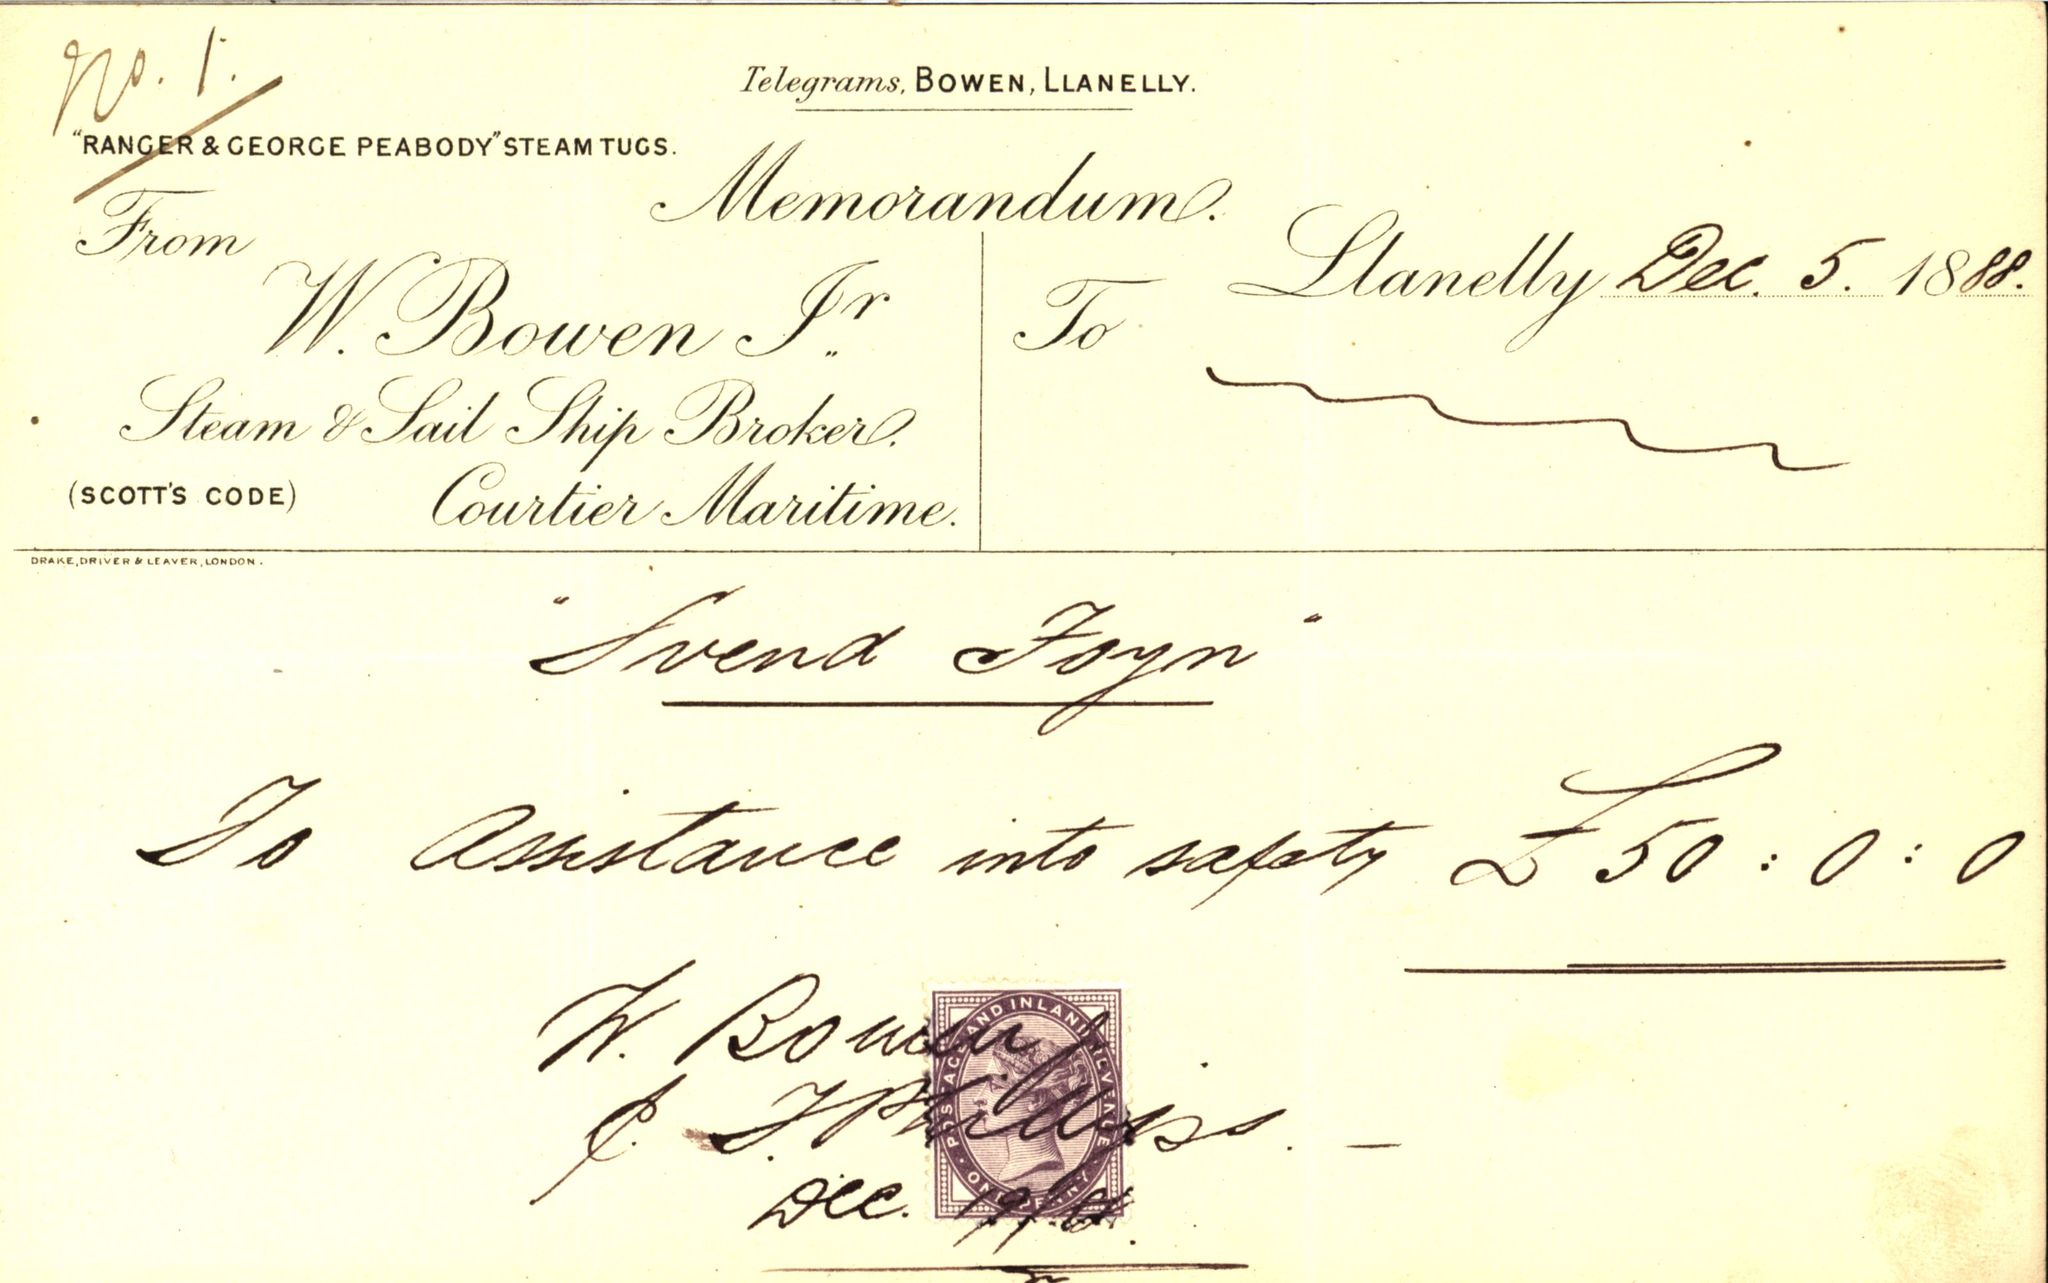 No. 1.
Telegrams, BOWEN, LLANELLY.
"RANGER & GEORGE PEABODY" STEAM TUGS.
Memorandum.
From
W. Bowen Jr.
Steam & Sail Ship Broker.
(SCOTT'S CODE) Courtier Maritime.
Llanelly Dec. 5. 1888.
To
DRAKE, DRIVER & LEAVER, LONDON.
"Svend Foyn"
To Assistance into safety £50:0:0
W. Bowen Jr
T. Phillips. —
Dec. 19/88.
POSTAGE AND INLAND REVENUE
ONE PENNY